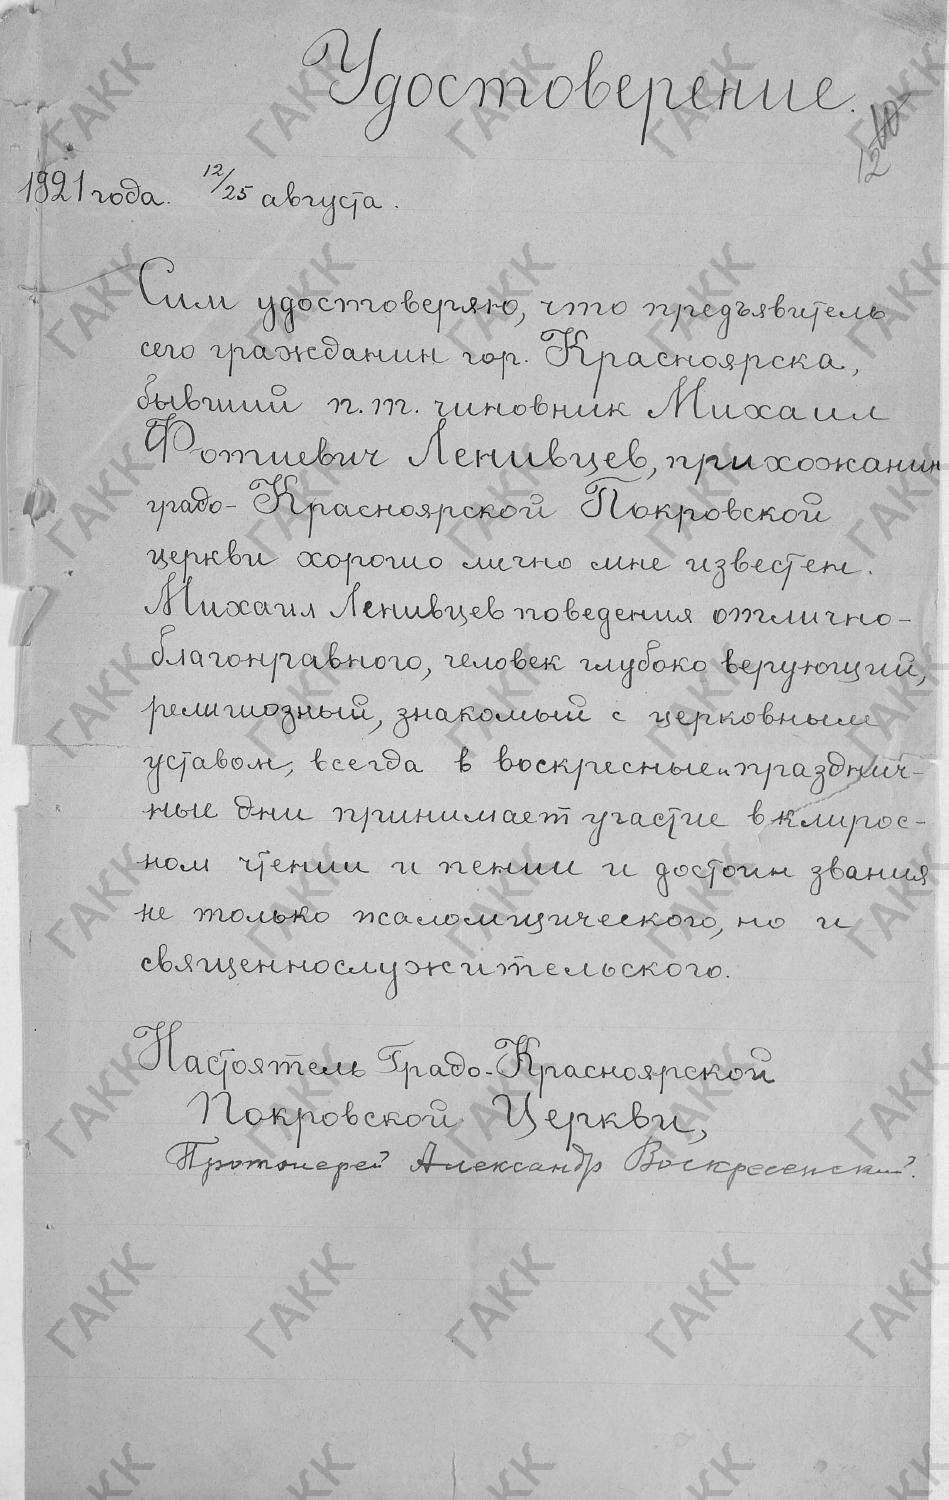 Удостоверение.
12
1921 года. 12/25 августа.
Сим удостоверяю, что предъявитель
сего гражданин гор. Красноярска,
бывший п.т. чиновник Михаил
Фотиевич Ленивцев, прихожанин
градо-Красноярской Покровской
церкви хорошо лично мне известен.
Михаил Ленивцев поведения отлично-
благонравного, человек глубоко верующий,
религиозный, знакомый с церковным
уставом, всегда в воскресные и празднич-
ные дни принимает участие в клирос-
ном чтении и пении и достоин звания
не только псаломщического, но и
священнослужительского.
Настоятель Градо-Красноярской
Покровской Церкви,
Протоиерей Александр Воскресенский.
ГАКК